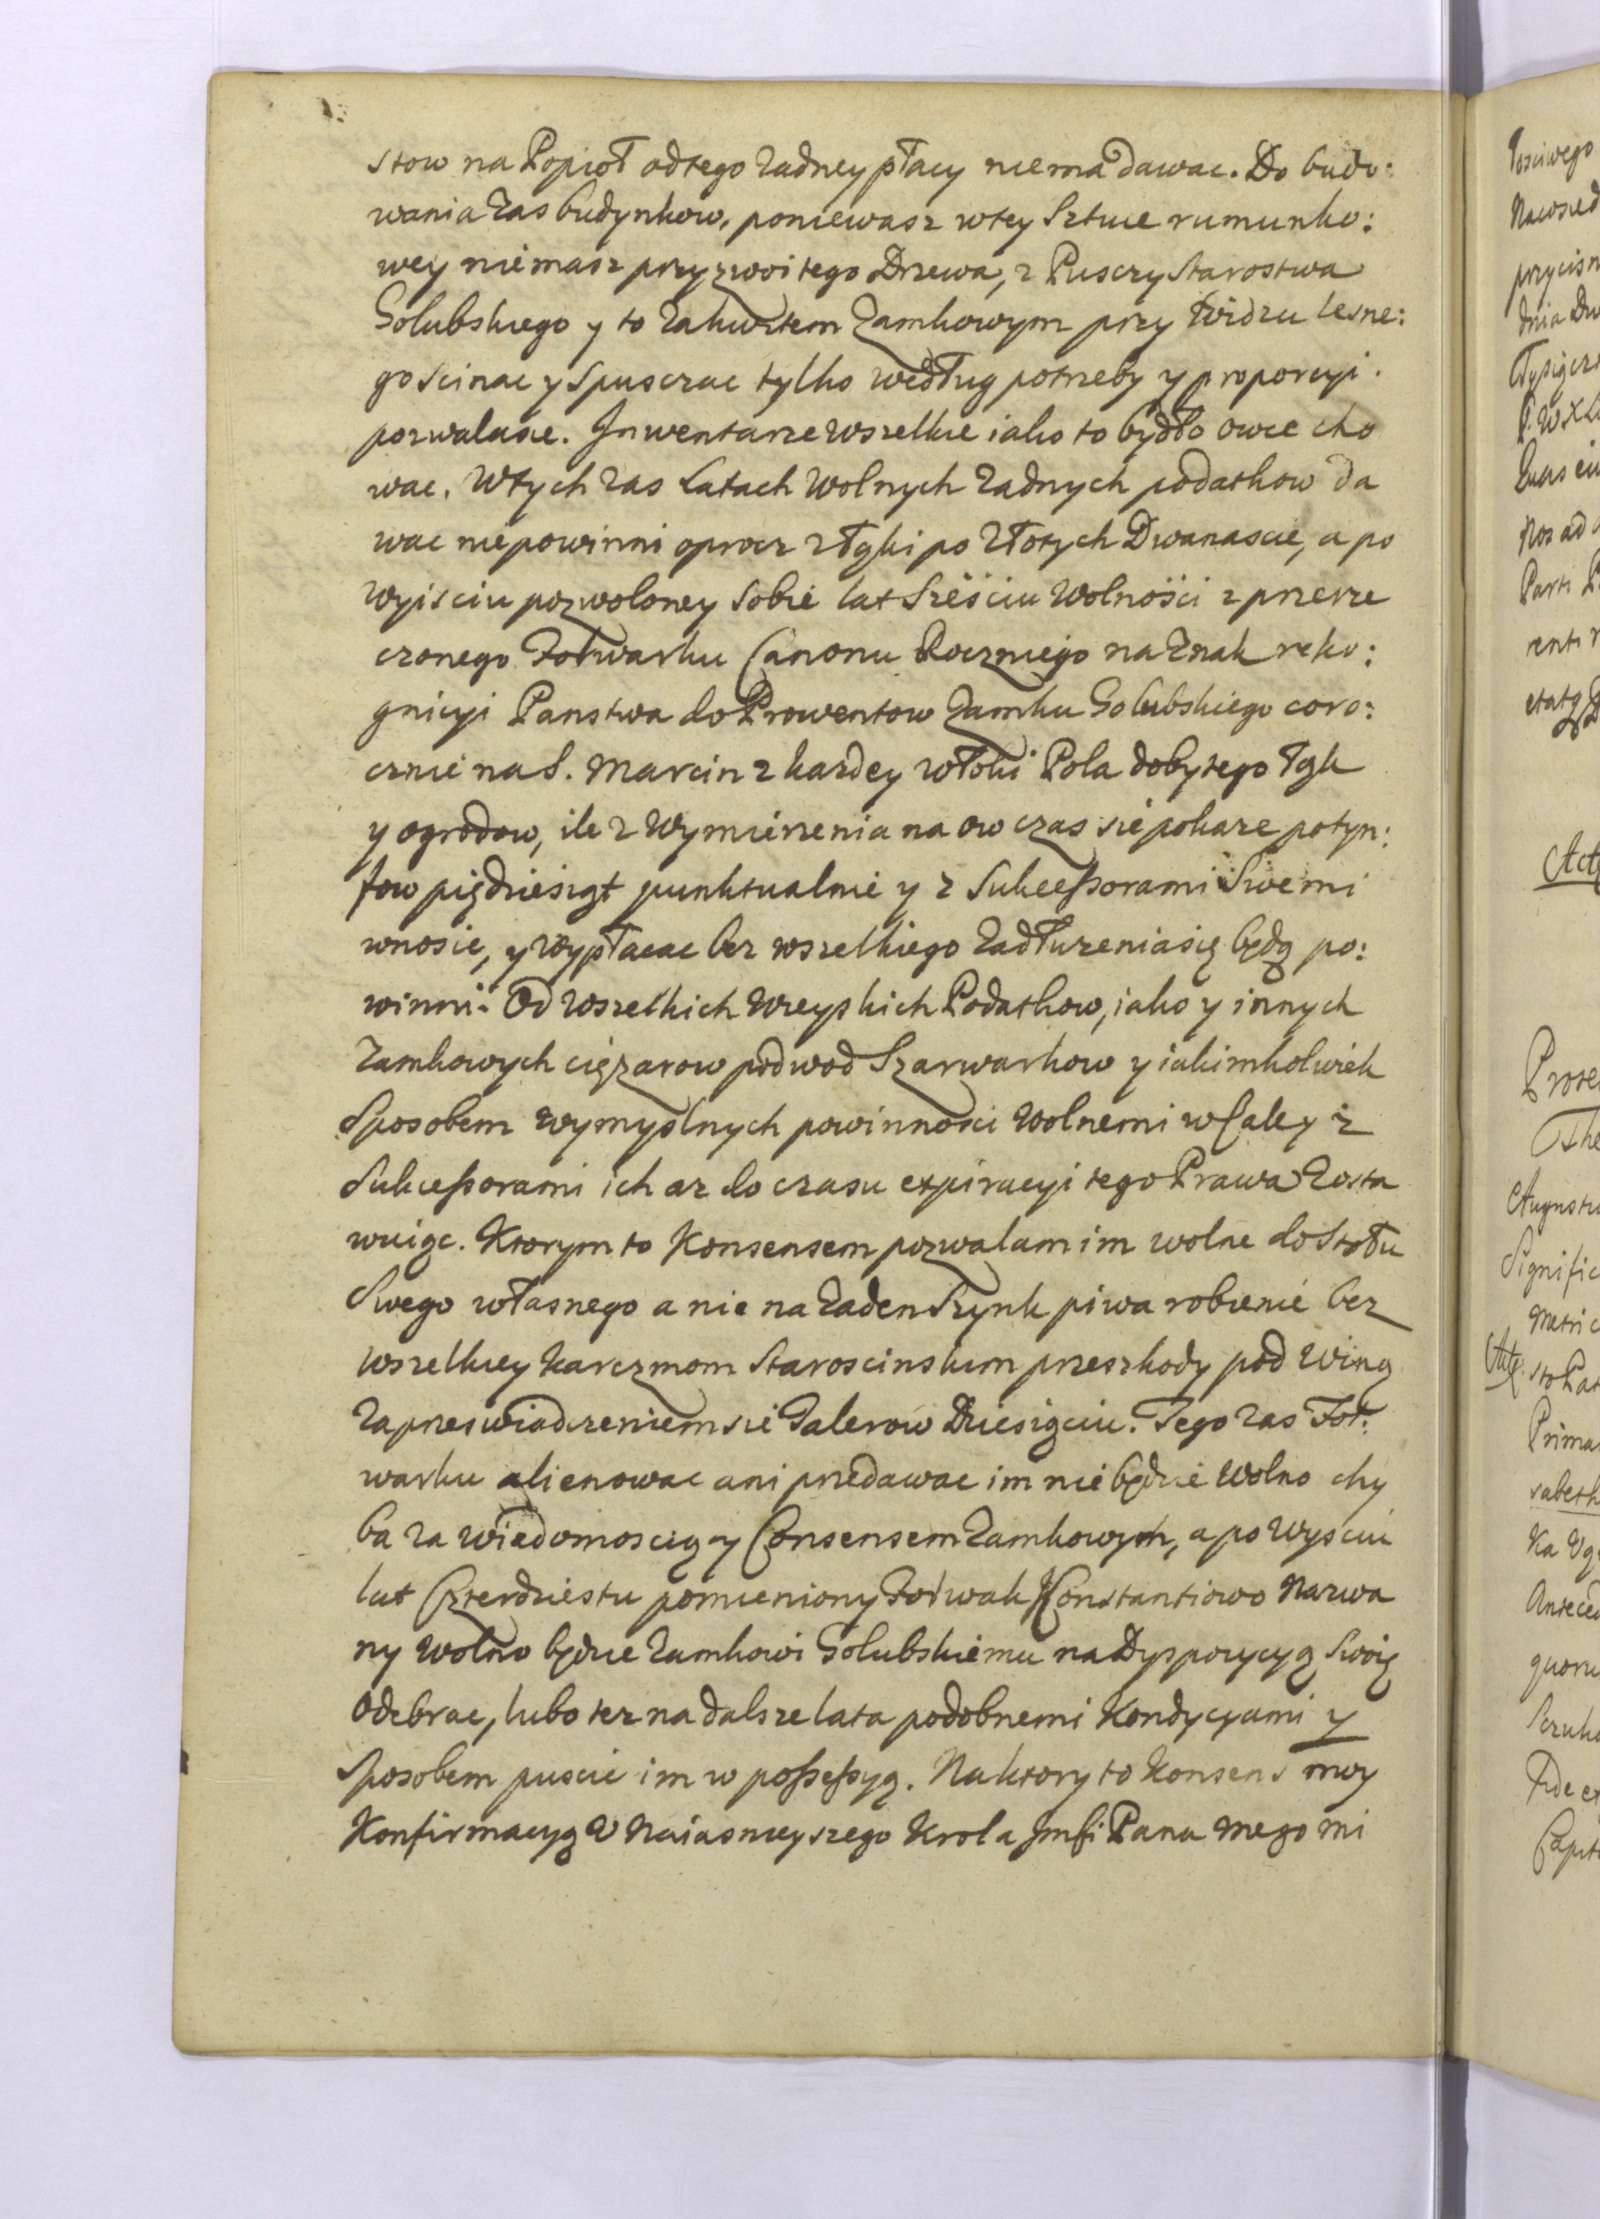 stow na Popioł od tego zadney płacy nie ma dawac. Do budo:
wania zas budynkow, poniewasz w tey Sztuce rumunko:
wey niemasz przyzwoitego Drzewa, z Pusczy Starostwa
Golubskiego y to za kwitem Zamkowym przy Widzu lesne:
go scinac y spusczac tylko według potrzeby y proporcyi
pozwalasie. Inwentarze wszelkie iako to bydło owce cho
wac. W tych zas Latach Wolnych zadnych podatkow da
wac niepowinni oprocz z Łąki po Złotych Dwanascie, a po
wyisciu pozwoloney Sobie lat Sześciu Wolności z przerze
czonego Folwarku Canonu Rocznego na Znak reko:
gnicyi Panstwa do Prowentow Zamku Golubskiego coro:
cznie na S. Marcin z kazdey włoki Pola dobytego Łąk
y ogrodow, ile z Wymierzenia na ow czas sie pokaze po tyn:
fow piędziesiąt punktualnie y z Sukceßorami Swemi
wnosic, y wypłacac bez wszelkiego Zadłuzenia się będą po:
winni. Od Wszelkich Wieyskich Podatkow, iako y innych
Zamkowych cięzarow podwod Szarwarkow y iakimkolwiek
Sposobem wymyslnych powinnosci Wolnemi w Cale y z
Sukceßorami ich az do czasu expiracyi tego Prawa Zosta
wuiąc. Ktorym to Konsensem pozwalam im wolne do Stołu
Swego własnego a nie na Zaden Szynk piwa robienie bez
wszelkiey karczmom Staroscinskim przeszkody pod Winą
za przeswiadczeniem sie Talerow Dziesięciu. Tego zas Fol:
warku alienowac ani przedawac im nie będzie Wolno chy
ba za wiadomoscią y Consensem Zamkowym, a po Wysciu
lat Czterdziestu pomieniony Folwak Konstantiowo Nazwa
ny Wolno będzie Zamkowi Golubskiemu na Dyspozycyą Swoię
Odebrac, lubo tez na dalsze lata podobnemi Kondycyami y
Sposobem puscic im w poßeßyą. Na ktory to Konsens moy
Konfirmacyą U Naiasnieyszego Krola Jmsi Pana Mego Mi